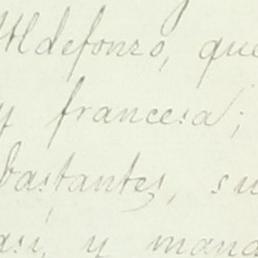 Ildefonso, que
y francesa;
bastantes, su
asi, y mand